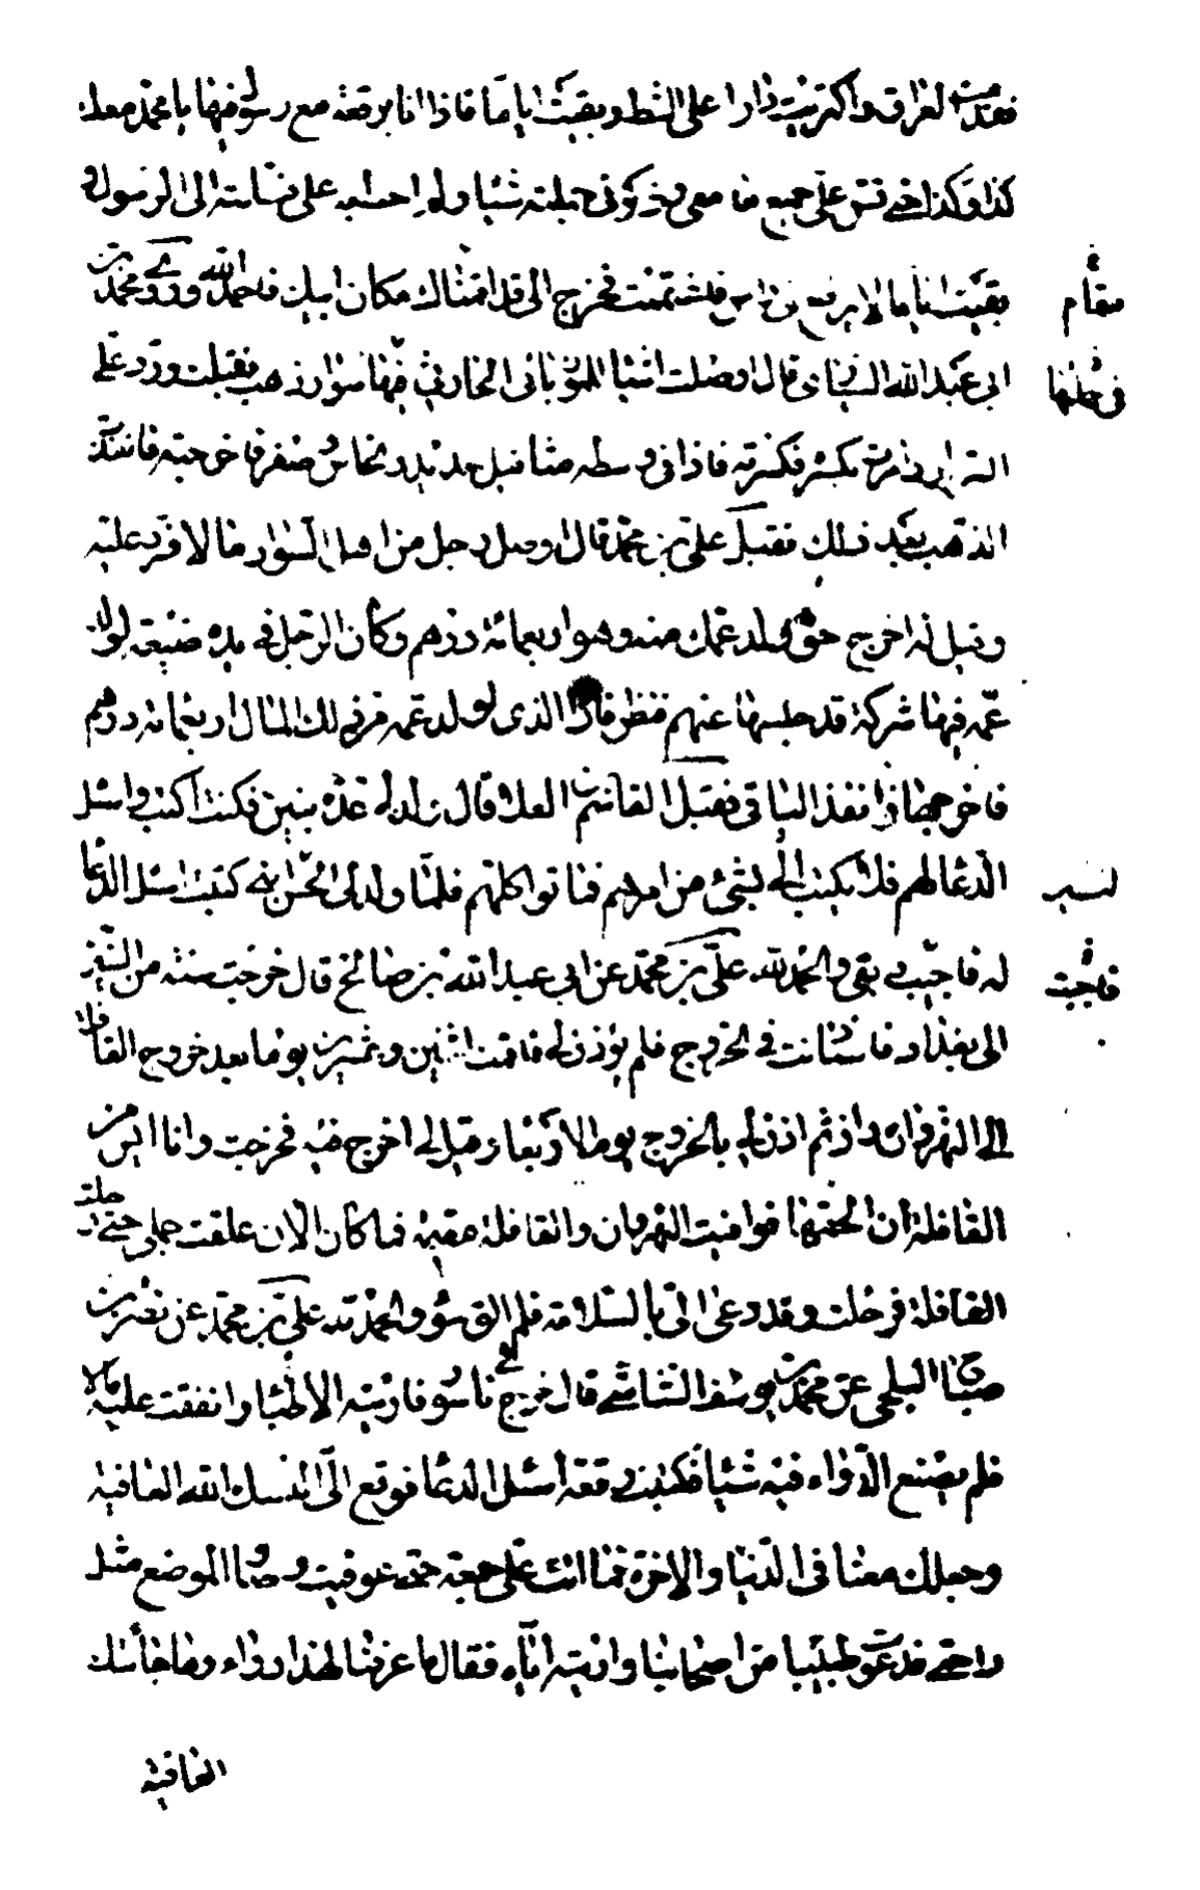 فقدمت العراق واكتريت دارا على الشط وبقيت اياما فاذا انا برقعة مع رسول فيها يا محمد معك
كذا وكذا حتى قص على جميع ما معى وذكر فى جملته شيئا ولم احط به على فسلمته الى الرسول و
بقيت اياما لا يرفع بى راس فاغتممت فخرج الى قد اقمناك مكان ابيك فاحمد الله وروى محمد بن
ابى عبد الله السيارى قال اوصلت اشياء للمرزبانى الحارثى فيها سوار ذهب فقبلت ورد على
السوار وامرت بكسره فكسرته فاذا فى وسطه مثاقيل حديد ونحاس وصفر فاخرجته فانفذت
الذهب بعد ذلك فقبل على بن محمد قال اوصل رجل من اهل السواد مالا فرد عليه
وقيل له اخرج حق ولد عمك منه وهو اربعمائة درهم وكان الرجل فى يده ضيعة لولد
عمه فيها شركة قد حبسها عنهم فنظر فاذا الذى لولد عمه من ذلك المال اربعمائة درهم
فاخرجها وانفذ الباقى فقبل القاسم بن العلا قال ولد لى عدة بنين فكنت اكتب واسئل
الدعا لهم فلا يكتب الى بشئ من امرهم فماتوا كلهم فلما ولد لى الحسن ابنى كتبت اسئل الدعا
له فاجيب يبقى والحمد لله على بن محمد عن ابى عبد الله بن صالح قال خرجت سنة من السنين
الى بغداد فاستاذنت فى الخروج فلم يؤذن لى فاقمت اثنين وعشرين يوما بعد خروج القافلة
الى النهروان ثم اذن لى بالخروج يوم الاربعاء وقيل لى اخرج فيه فخرجت وانا ايس من
القافلة ان الحقها فوافيت النهروان والقافلة مقيمة فما كان الا ان علفت جملى حتى رحلت
القافلة فرحلت وقد دعى لى بالسلامة فلم الق سوء والحمد لله على بن محمد عن نصر بن
صباح البلخى عن محمد بن يوسف الشاشى قال خرج بى ناسور فاريته الاطباء وانفقت عليه مالا
فلم يصنع الدواء فيه شيئا فكتبت رقعة اسئل الدعا فوقع الى البسك الله العافية
وجعلك معنا فى الدنيا والاخرة فما اتت على جمعة حتى عوفيت وصار الموضع مثل
راحتى فدعوت طبيبا من اصحابنا واريته اياه فقال ما عرفنا لهذا دواء وما جائتك
العافية
مقام
فى جملتها
لسير
فاجبت